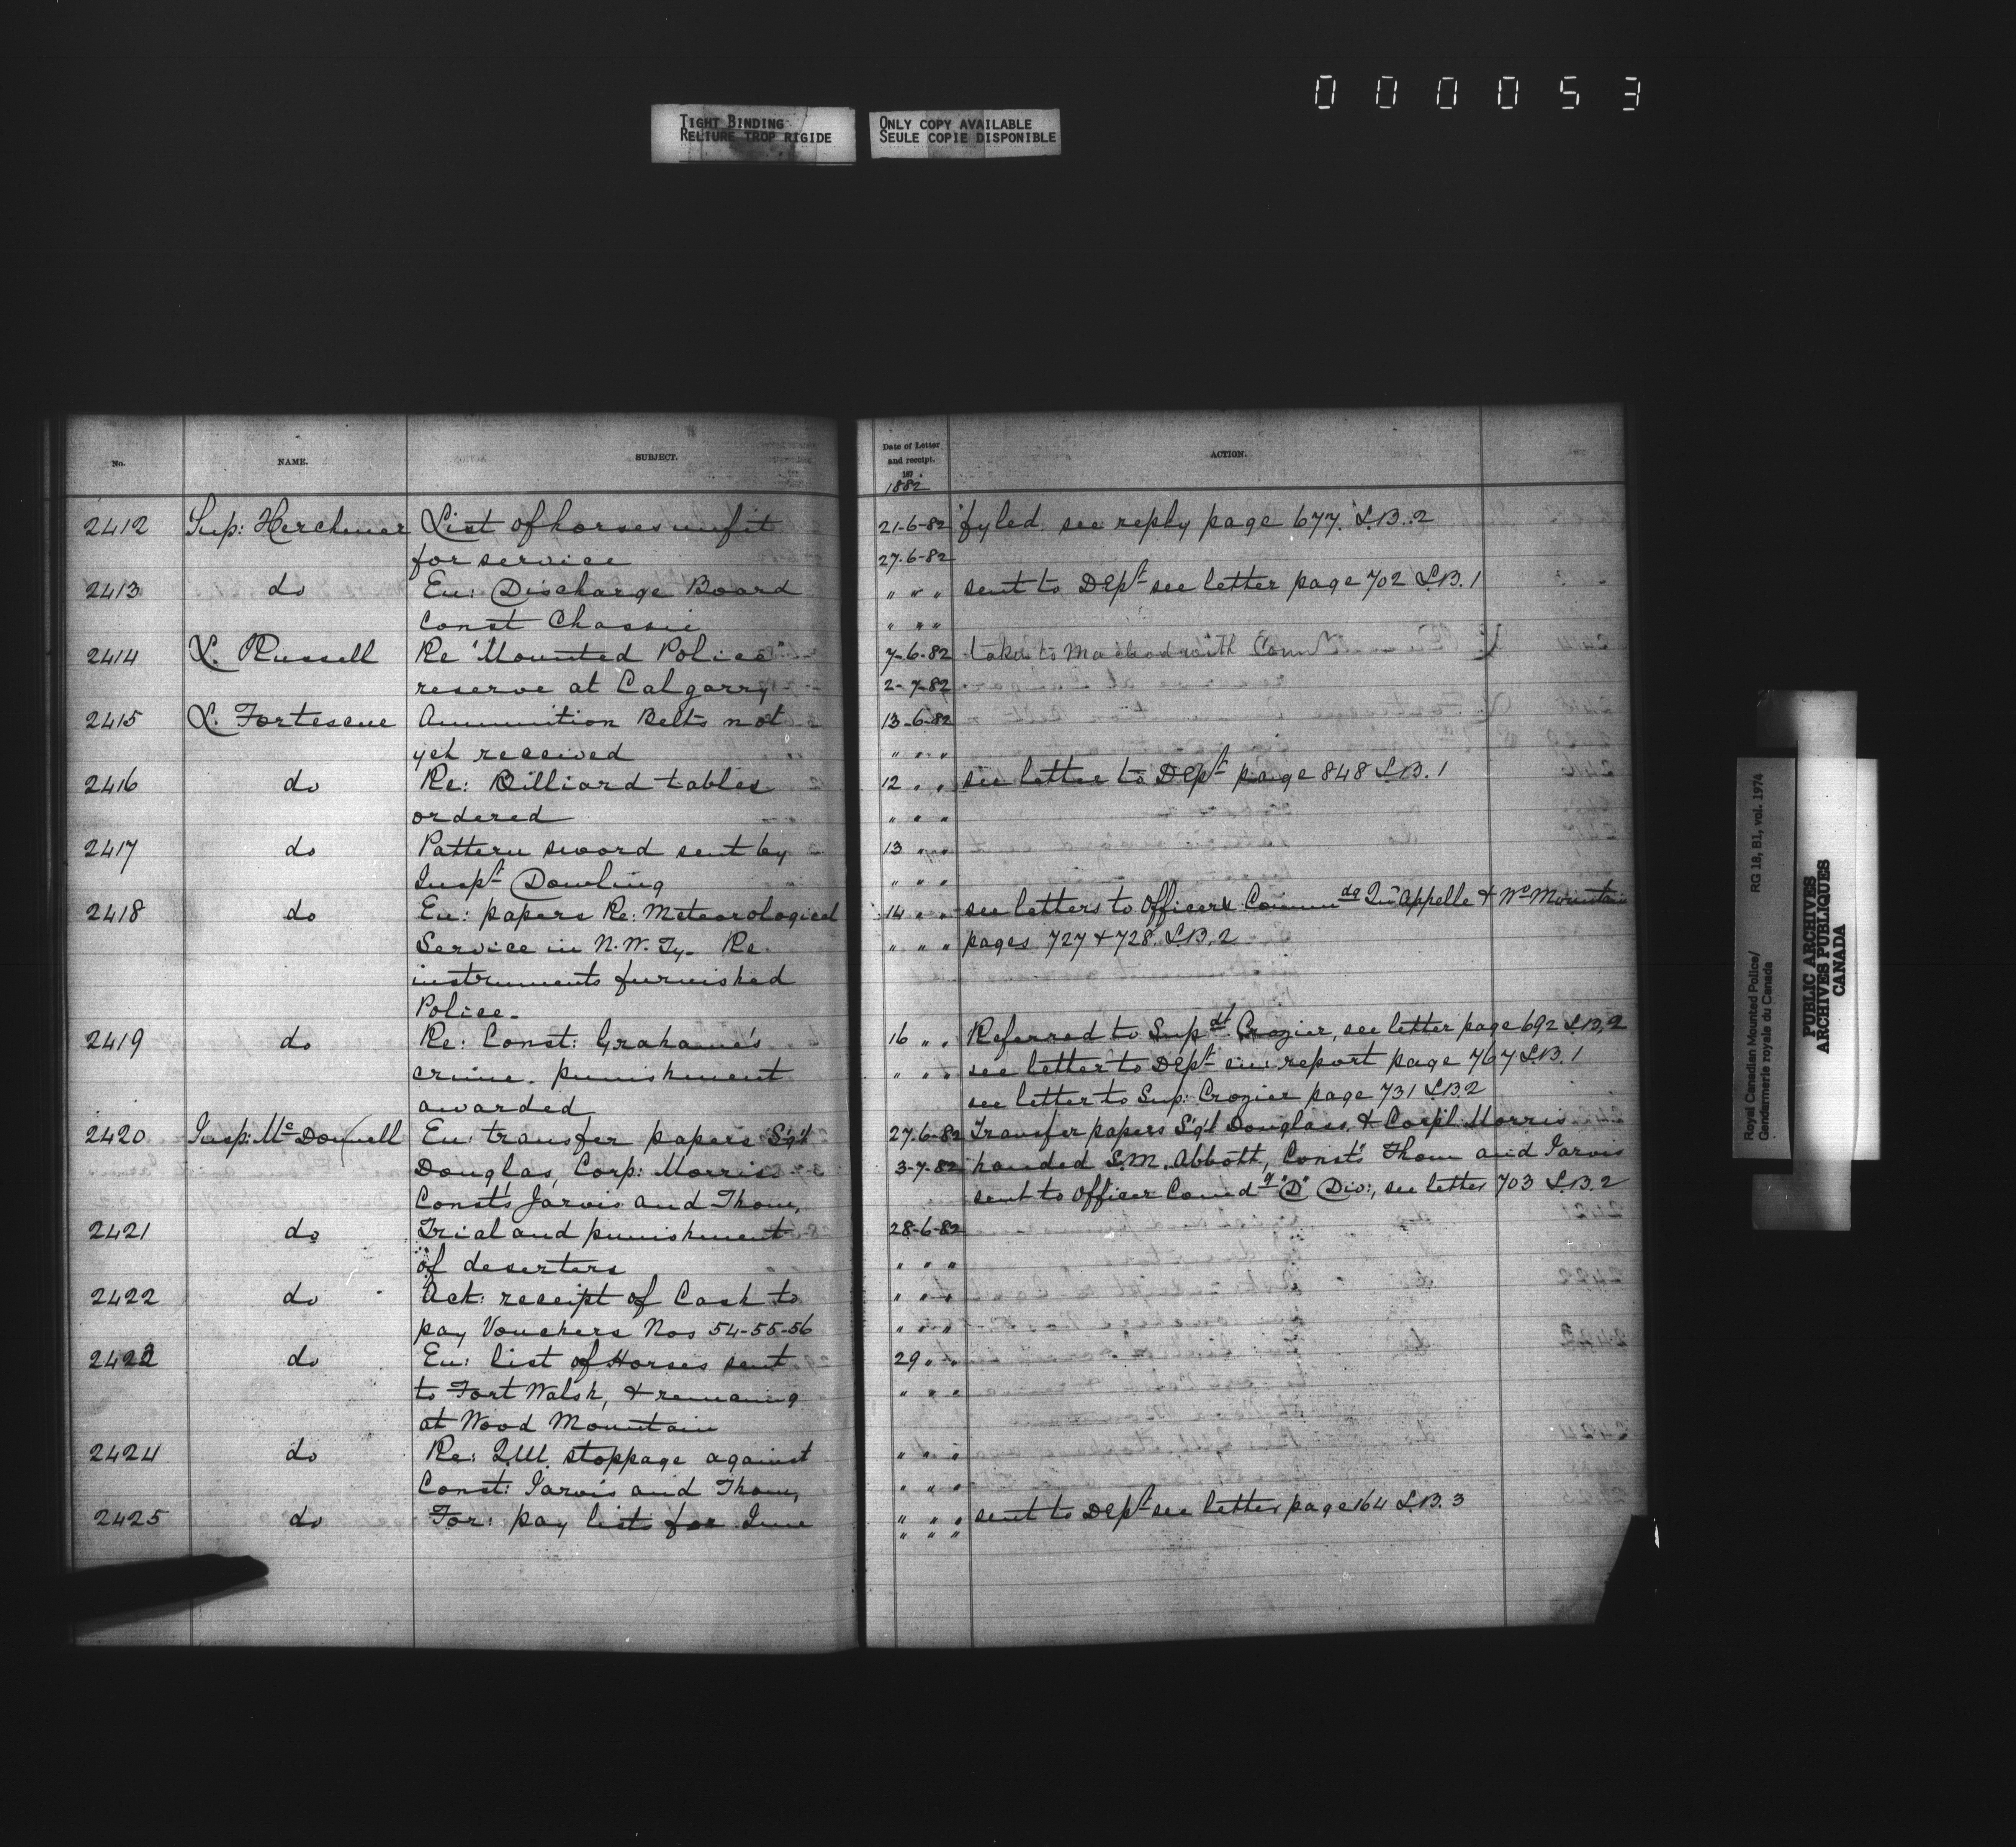 000053
TIGHT BINDING
RELIURE TROP RIGIDE
ONLY COPY AVAILABLE
SEULE COPIE DISPONIBLE
No.
NAME.
SUBJECT.
Date of Letter
and receipt.
187
1882
ACTION.
2412 Sup: Herchmer List of horses unfit 21-6-82 fyled. see reply page 677. L.B. 2
for service 27-6-82
2413 do En: Discharge Board " " " sent to Dept see letter page 702 L.B. 1
Const Chassie " " "
2414 L. Russell Re "Mounted Police" 7-6-82 taken to Macleod with
reserve at Calgarry 2-7-82
2415 L. Fortescue Ammunition Belts not 13-6-82
yet received " " "
2416 do Re: Billiard tables 12 " " see letter to Dept page 848 L.B. 1
ordered " " "
2417 do Pattern sword sent by 13 " "
Inspt Dowling " " "
2418 do En: papers Re: Meteorological 14 " " see letters to Officers Commdg Qu'Appelle & Wd Mountain
Service in N.W. Ty. Re " " " pages 727 & 728 L.B. 2
instruments furnished
Police.
2419 do Re: Const: Grahame's 16 " " Referred to Supdt Crozier, see letter page 692 L.B. 2
crime. punishment " " " see letter to Dept en: report page 767 L.B. 1
awarded see letter to Sup: Crozier page 731 L.B. 2
2420 Insp: McDonnell En: transfer papers Sgt 27-6-82 Transfer papers Sgt Douglass & Corpl Morris
Douglas, Corp: Morris 3-7-82 handed S.M. Abbott, Consts Thom and Jarvis
Consts Jarvis and Thom, sent to Officer Comdg "D" Div:, see letter 703 L.B. 2
2421 do Trial and punishment 28-6-82
of deserters " " "
2422 do Ack: receipt of Cash to " " "
pay Vouchers Nos 54-55-56 " " "
2423 do En: list of Horses sent 29 " "
to Fort Walsh, & remaning " " "
at Wood Mountain
2424 do Re: Q.M. stoppage against " " "
Const: Jarvis and Thom, " " "
2425 do For: pay lists for June " " " sent to Dept see letter page 164 L.B. 3
" " "
Royal Canadian Mounted Police/
Gendarmerie royale du Canada
RG 18, B1, vol. 1974
PUBLIC ARCHIVES
ARCHIVES PUBLIQUES
CANADA